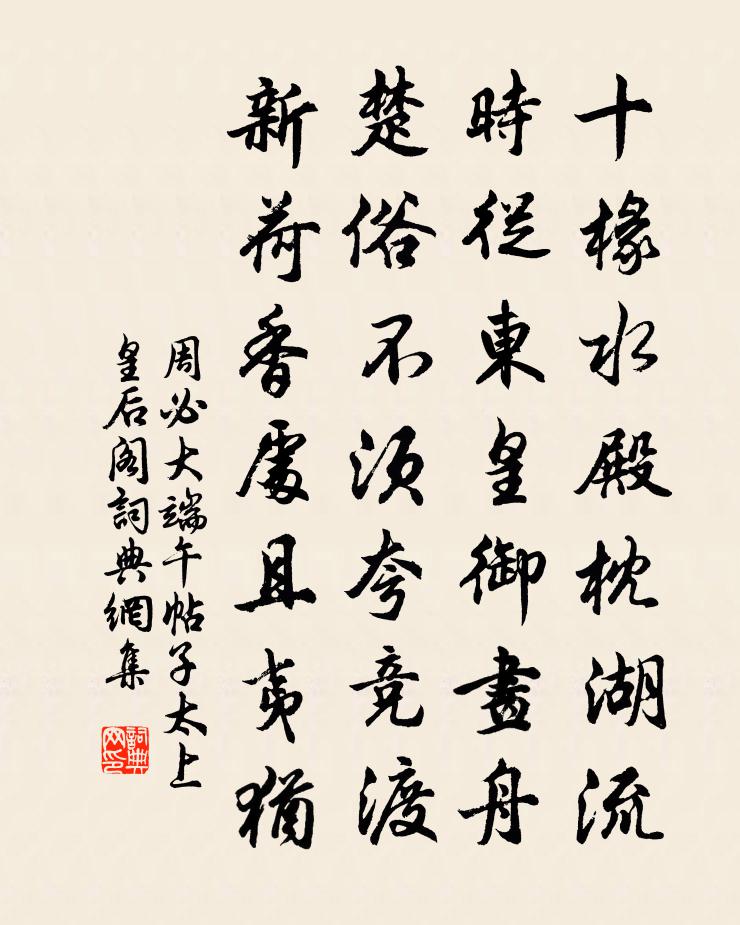 十椽水殿枕湖流
時從東皇御畫舟
楚俗不須夸競渡
新荷香處且夷猶
周必大端午帖子太上
皇后阁詞典網集
詞典网印